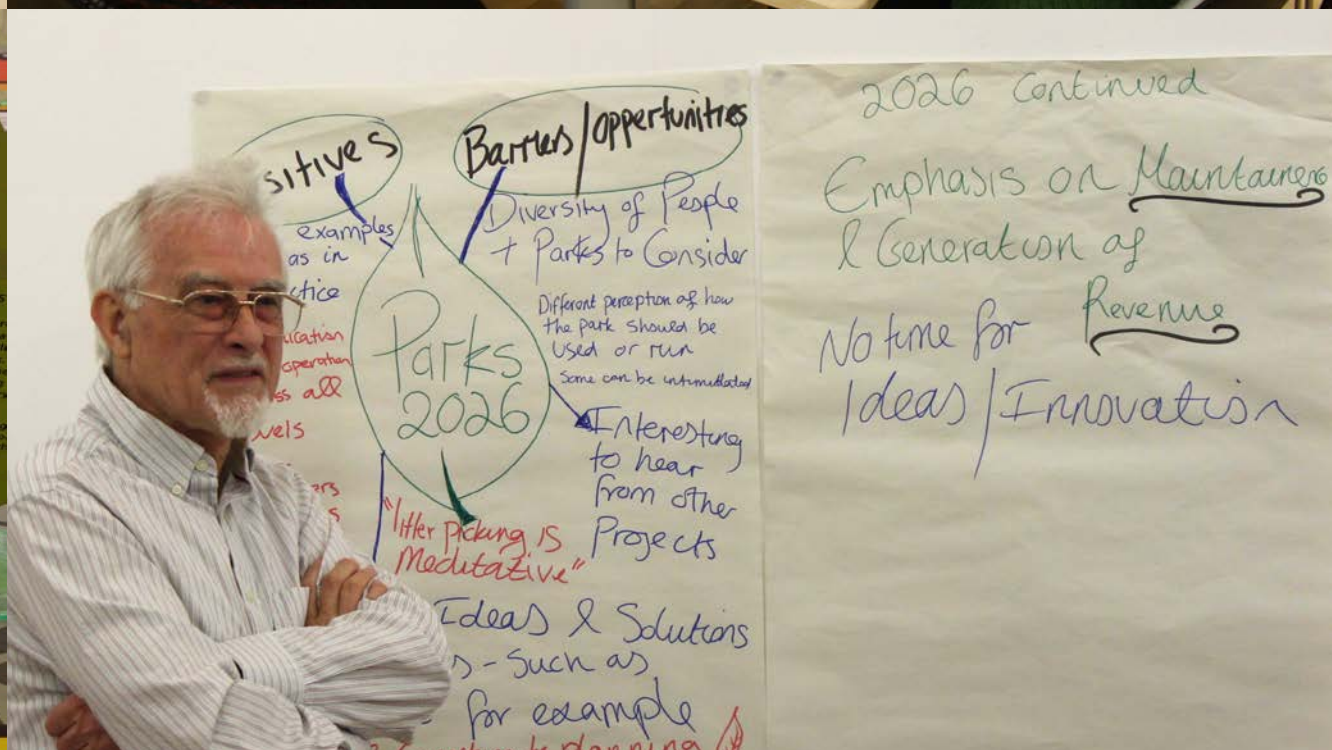 sitives
examples
as in
ctice
ication
operation
ss all
vels
ers
s
Barriers/oppertunities
Diversity of People
+ Parks to Consider
Different perception of how
the park should be
used or run
Some can be intimidated
Parks
2026
Interesting
to hear
from other
Projects
"litter picking is
Meditative"
Ideas & Solutions
s - Such as
for example
planning
2026 Continued
Emphasis on
& Generation of
Revenue
No time for
Ideas/Innovation